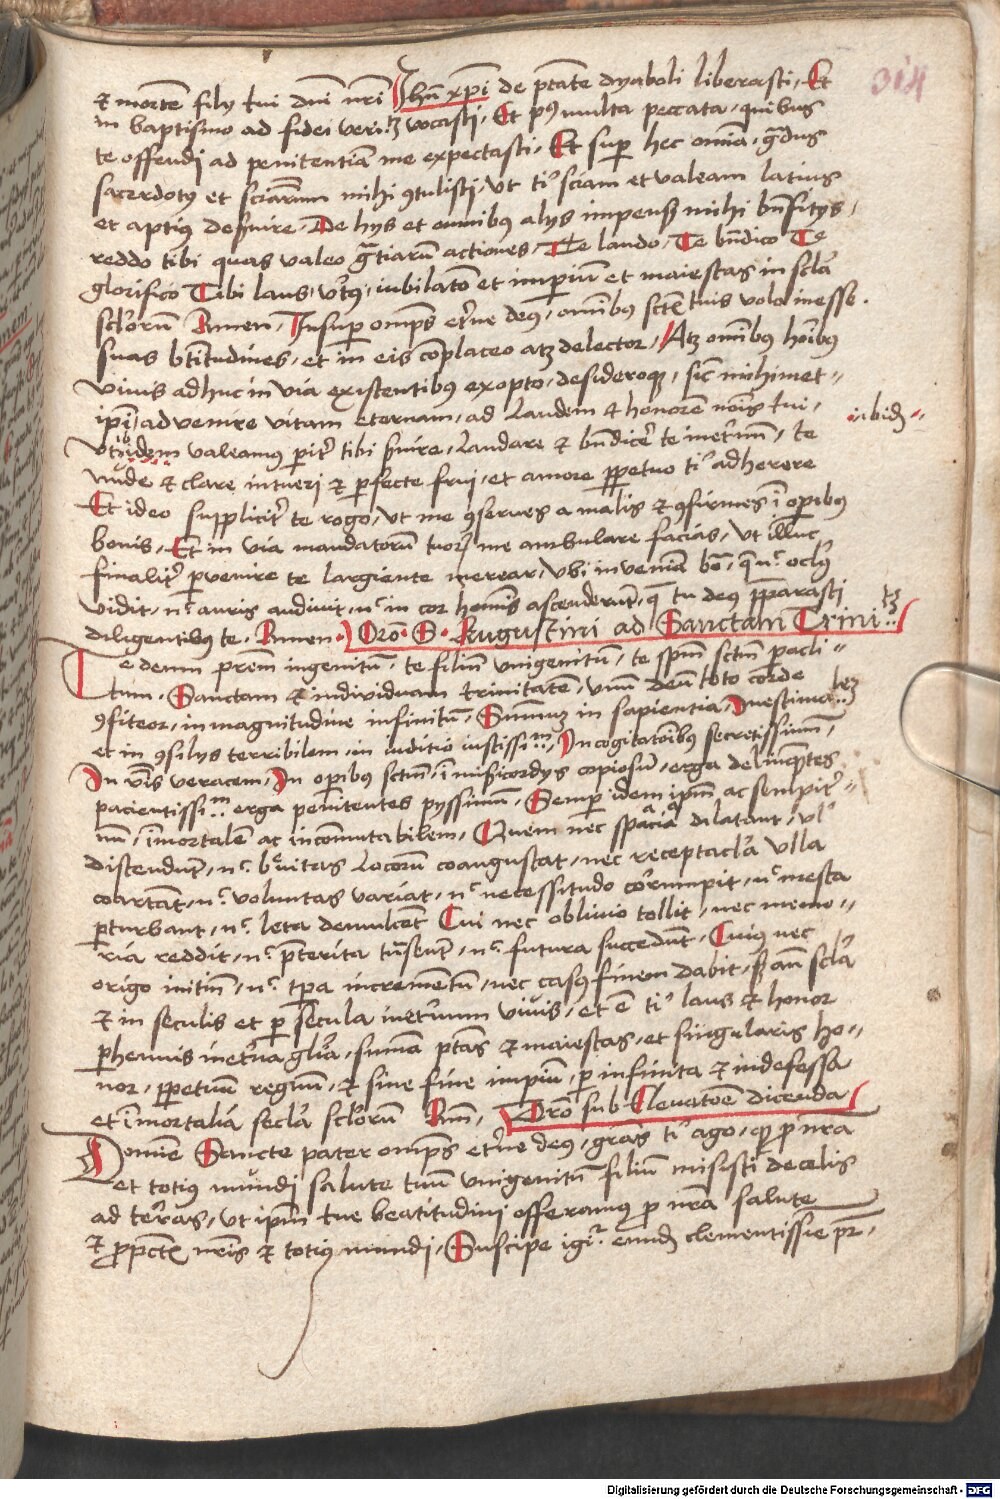 314
et mortē filij tui dn̄i nr̄i Jhū xp̄i de ptāte dyaboli liberasti, Et
in baptismo ad fidei veritatem vocasti, Et p9 multa peccata, quibus
te offendi ad penitentiā me expectasti, Et sup hec omnia, gradus
sacerdotij et sciarum mihi 9tulisti, vt ti' sciam et valeam latius
et aptius deservire, De hijs et omnibus alijs impensis mihi bn̄ficijs,
reddo tibi quas valeo gr̄arū actiones, Te laudo, Te bn̄dico Te
glorifico Tibi laus, v̓t9, iubilatō et imperiū et maiestas in scl̓a
scl̓orum Amen, Insup omp̄s et̓ne deus, omnibus sctīs tuis volo inesse
suas btītudines, et in eis complaceo atq3 delector, Atq3 omībus hoībus
vivis adhuc in via existentibus exopto, desideroque, sic mihimet=
ipi, advenire vitam eternam, ad laudem et honorē noīs tui,
ibid3
vt ibidem valeamus parit̓ tibi s̓uire, laudare et bn̄dicere te inet̓nū, te
nude et clare intueri et perfecte frui, et amore perpetuo ti' adherere
Et ideo suppliciter te rogo, vt me 9serues a malis et 9firmes ī operibus
bonis, Et in via mandatorū tuor3 me ambulare facias, vt illuc
finalit̓ pervenire te largiente merear, vbi inveniā bō, que nc oclus
vidit, nc auris audiuit, nc in cor homīs ascenderūt, que tu deus preparasti
diligentibus te, Amen. Orō. S. Augustini ad Sanctam Trini..tē
Te deum prēm ingenitū, te filiū vnigenitū, te spm̄ sctm̄ paracli=
tum, Sanctam et individuam trinitatē, vnū deū toto corde
9fiteor, in magnitudine infinitū, Summū in sapientia, Inestimabilē
et in 9silijs terribilem, in iuditio iustissim.., In cogitatoībus secretissimū,
In v̓bis veracem, In operibus sctm̄, ī misericordijs copiosū, erga delinquētes
pacientissim.. erga penitentes pyssimū, Semper idem ipm̄ ac sempit̓=
nū, īmortalē ac incommutabilem, Quem nec spacia dilatant, vl'
distendūt, nc breuitas locorū coangustat, nec receptacl̓a vlla
coartāt, nc voluntas variat, nc necessitudo corrumpit, nc mesta
p̱turbant, nc leta demulcēt Cui nec obliuio tollit, nec memo=
ria reddit, nc pret̓ita transeūt, nc futura succedūt, Cuius nec
origo initiū, nc tp̄a incrementū, nec casus finem dabit, S3 an̄ scl̓a
et in seculis et per secula inet̓num viuis, et ē ti' laus et honor
p̱hennis inet̓na gl̓ia, summa ptās et maiestas, et singularis ho=
nor, perpetuū regnū, et sine fine imperiū, per infinita et indefessa
et īmortalia secl̓a scl̓orum Am̄, Orō sub Eleuatoē dicenda
Domīe Sancte pater omp̄s et̓ne deus, grās ti' ago, qz pro nr̄a
et totius mundi salute tuū vnigenitū filiū misisti de celis
ad terras, vt ipm̄ tue beatitudini offeramus pro nr̄a salute
et pro pctīs nr̄is et totius mundi, Suscipe igi. eund3 clementissīe pr̄,
Digitalisierung gefördert durch die Deutsche Forschungsgemeinschaft - DFG